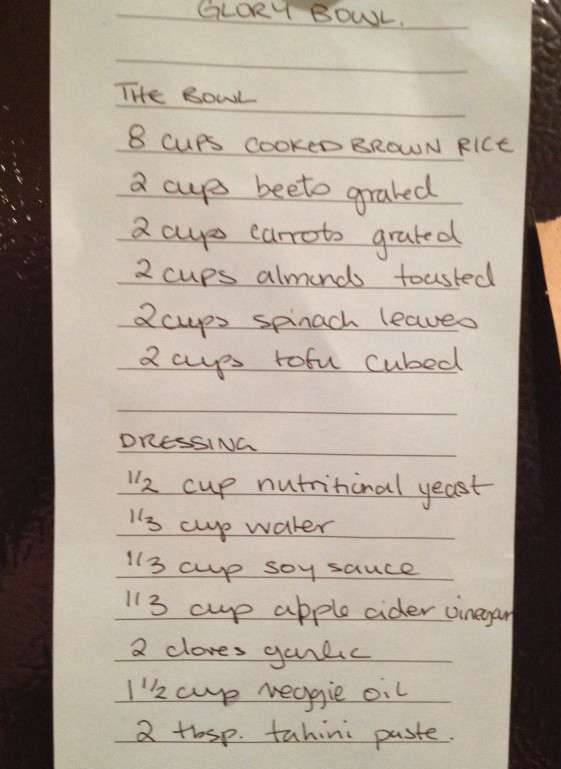 GLORY BOWL.
THE BOWL
8 CUPS COOKED BROWN RICE
2 cups beets grated
2 cups carrots grated
2 cups almonds toasted
2 cups spinach leaves
2 cups tofu cubed
DRESSING
1/2 cup nutritional yeast
1/3 cup water
1/3 cup soy sauce
1/3 cup apple cider vinegar
2 cloves garlic
1 1/2 cup veggie oil
2 tbsp. tahini paste.